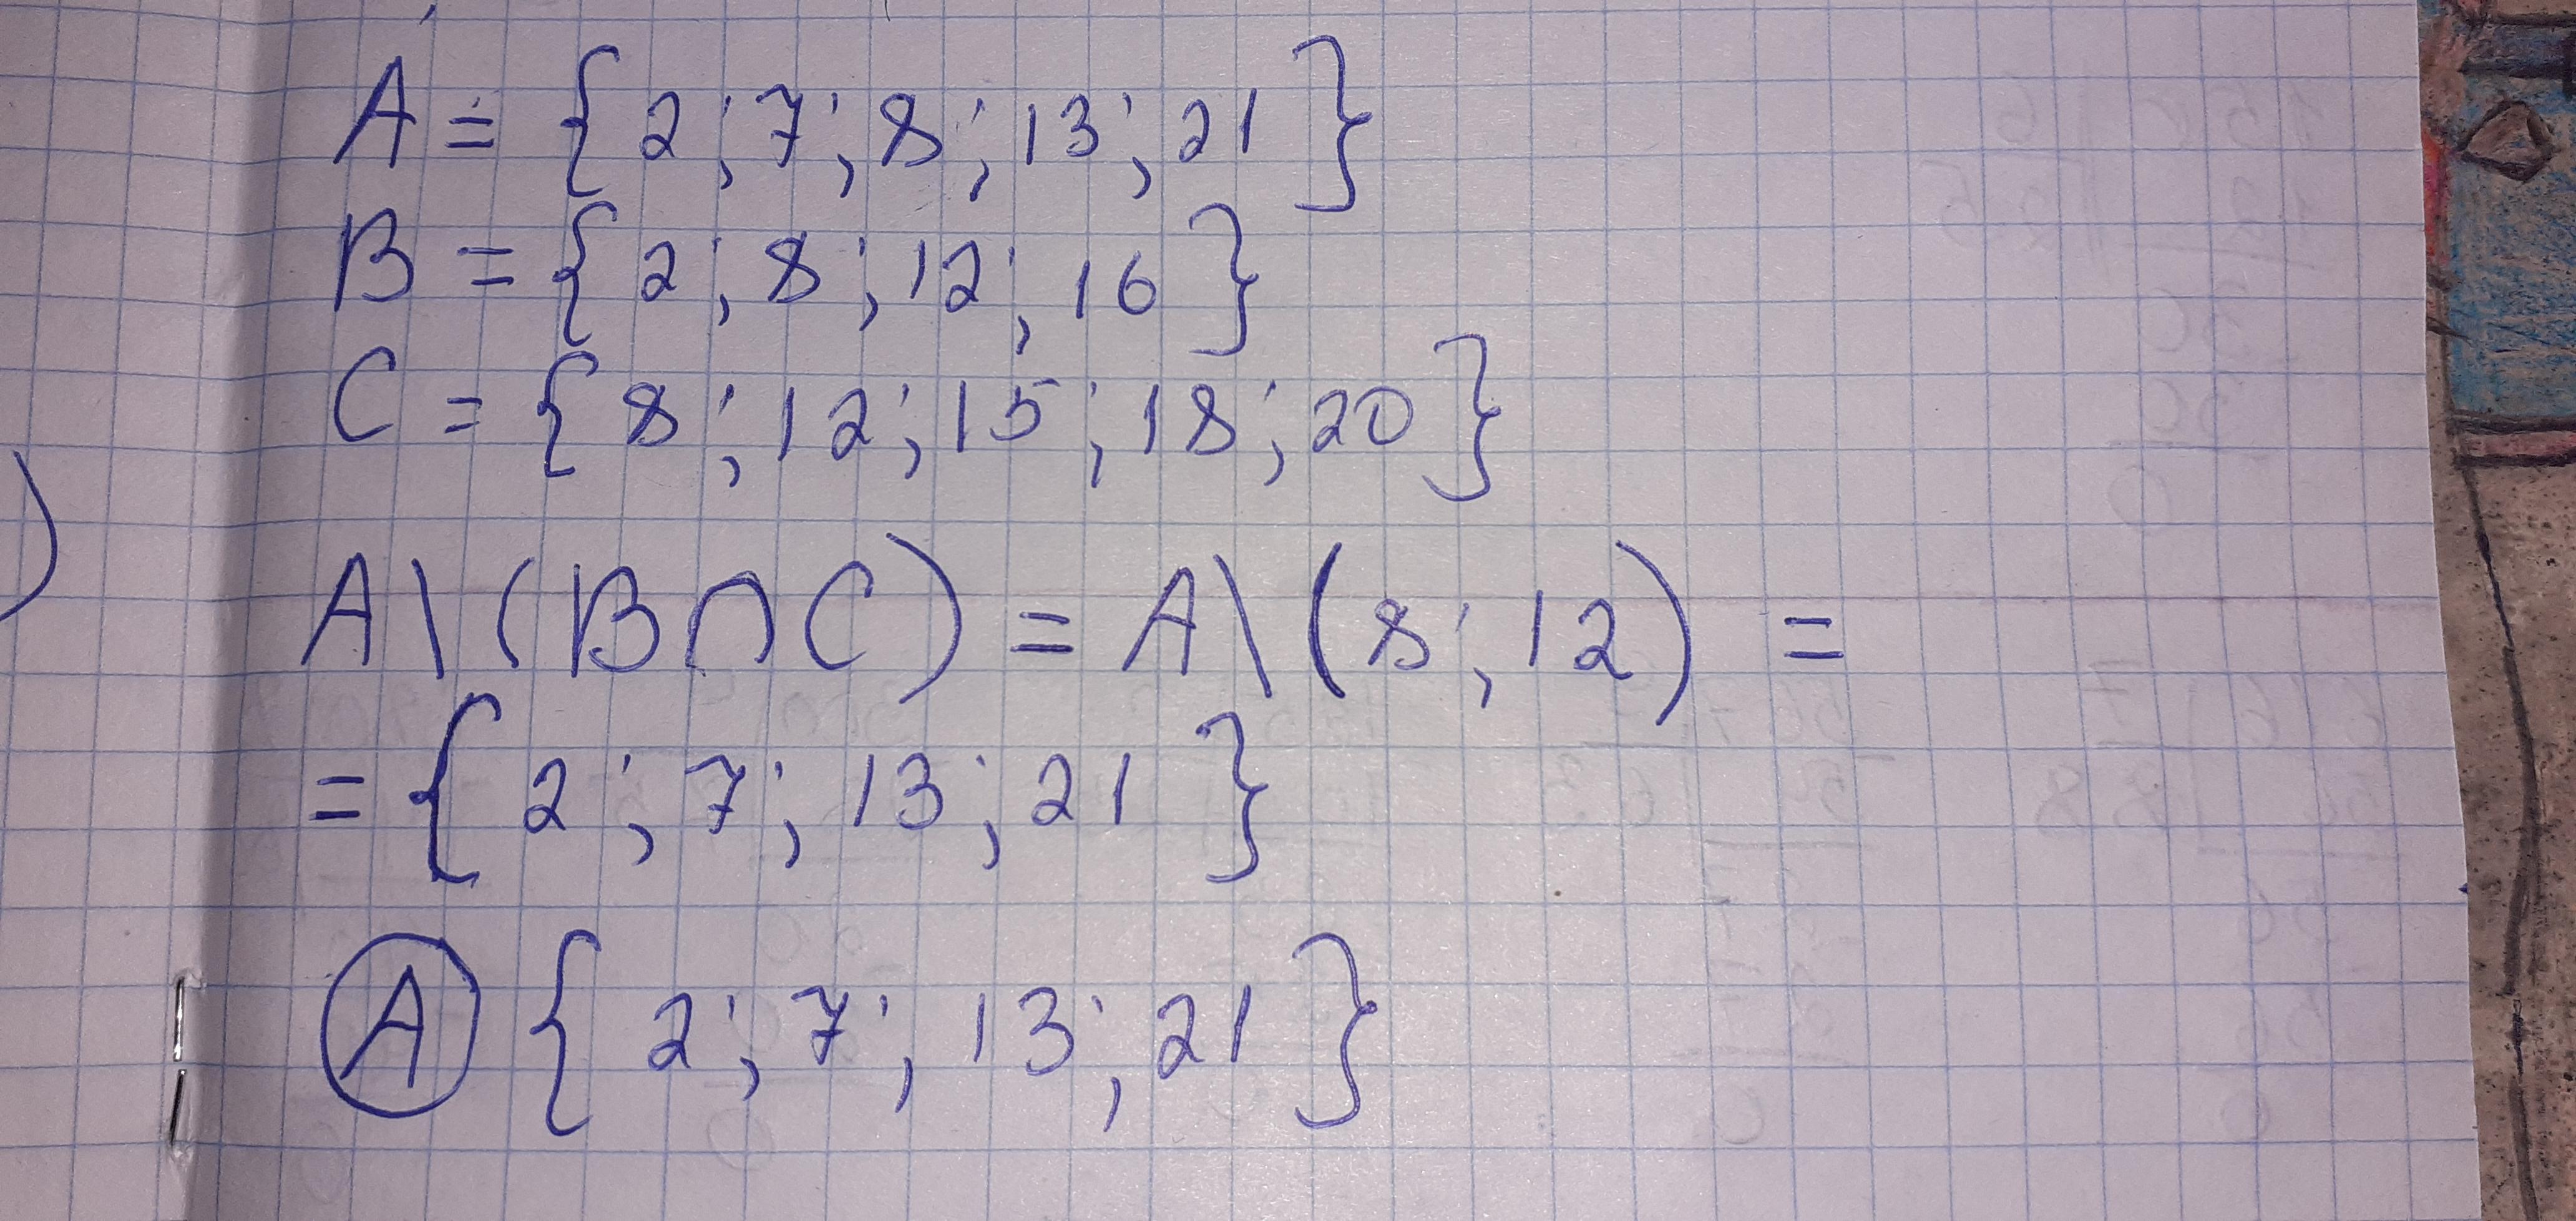 A = {2; 7; 8; 13; 21}
B = {2; 8; 12; 16}
C = {8; 12; 15; 18; 20}
A \ (B ∩ C) = A \ (8; 12) =
= {2; 7; 13; 21}
A {2; 7; 13; 21}